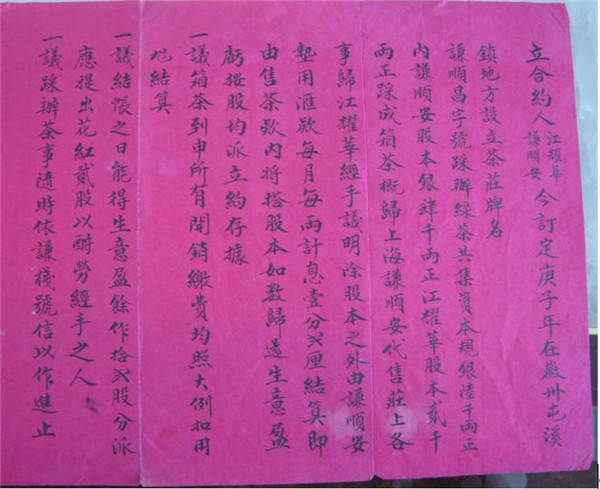 立合約人江耀華謙順安今訂定庚子年在徽州屯溪
鎮地方設立茶莊牌名
謙順昌字號踩辦綠茶共集資本規銀陸千両正
內謙順安股本銀肆千両正江耀華股本貳千
両正踩成箱茶概歸上海謙順安代售莊上各
事歸江耀華經手議明除股本之外由謙順安
墊用滙欵每月每両計息壹分弍厘結算即
由售茶欵內將搭股本如数歸還生意盈
虧按股均派立約存據
一議箱茶到申所有開銷繳費均照大例扣用
結算
一議結帳之日能得生意盈餘作拾弍股分派
應提出花紅貳股以酧勞經手之人
一議踩辦茶事隨時依謙棧號信以作進止